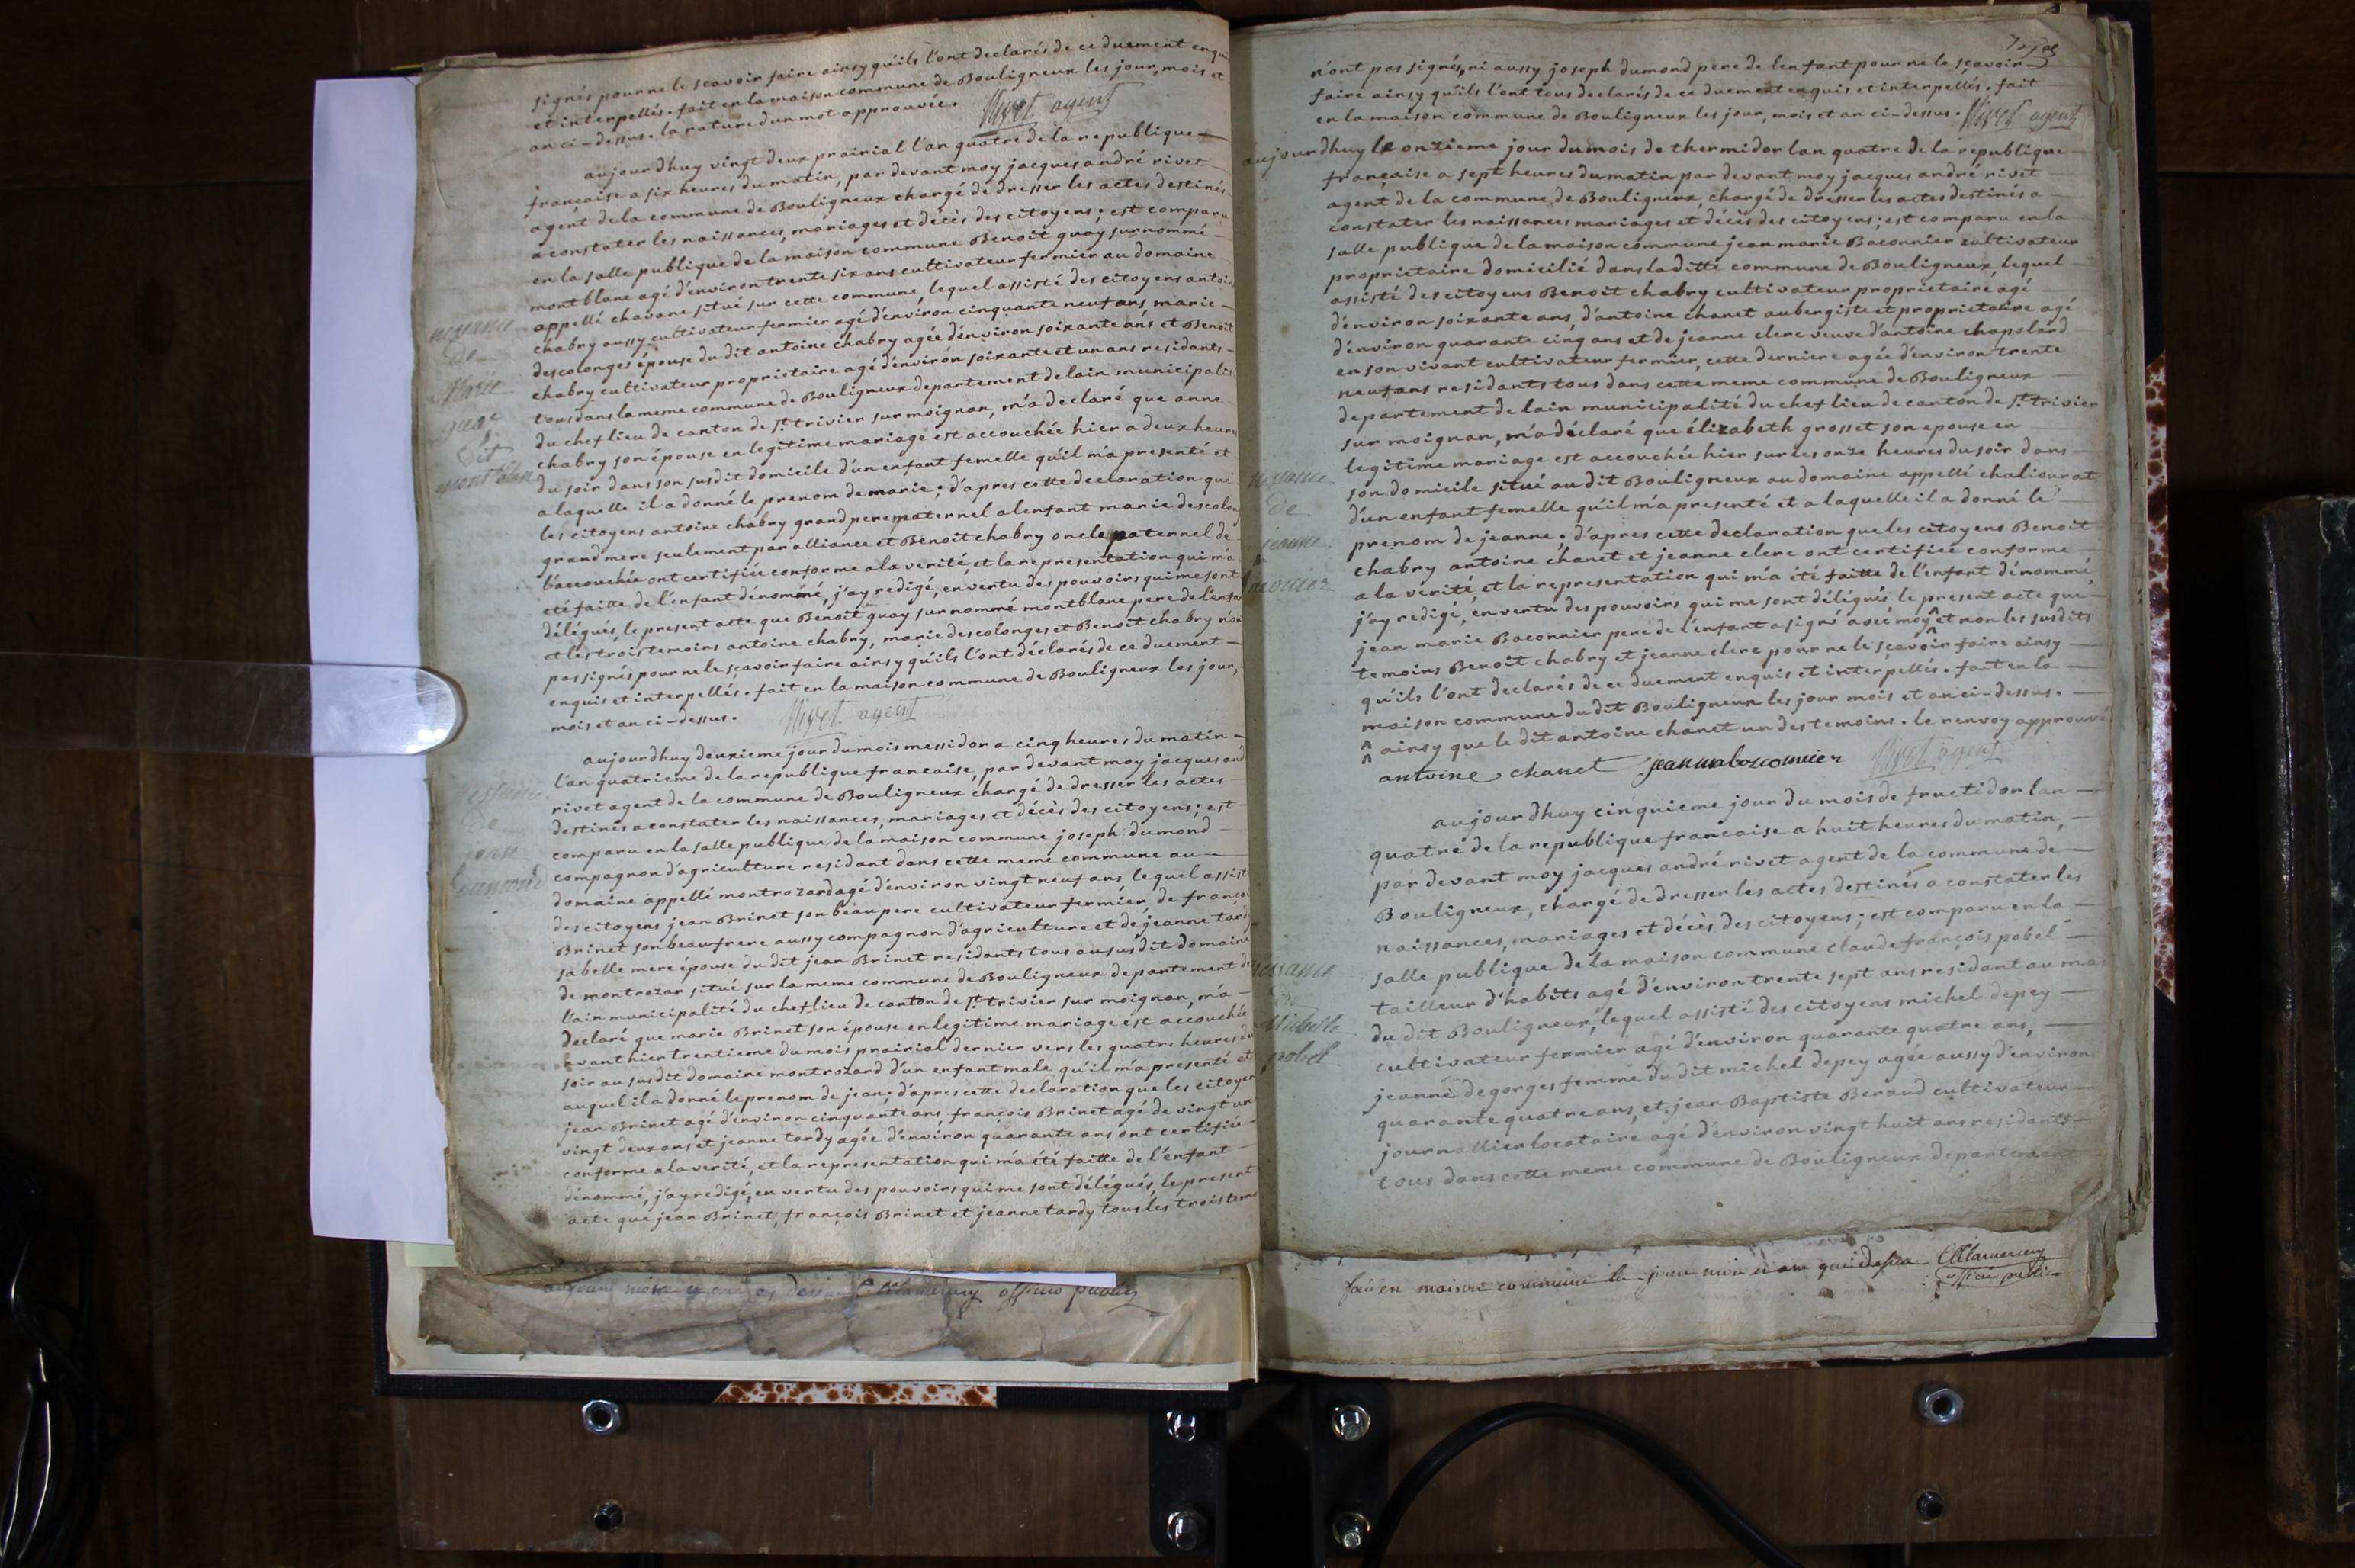 signés pour ne le scavoir faire ainsy qu'ils l'ont declarés de ce duement enquis
et interpellés. fait en la maison commune de Bouligneux les jour, mois et
an ci-dessus. la rature d'un mot approuvée. Rivet agent
aujourdhuy vingt deux prairial l'an quatre de la republique
française a six heures du matin, par devant moy jacques andré rivet
agent de la commune de Bouligneux chargé de dresser les actes destinés
a constater les naissances, mariages et décès des citoyens; est comparu
en la salle publique de la maison commune Benoit guay surnommé
montblanc agé d'environ trente six ans cultivateur fermier au domaine
appellé chavane situé sur cette commune, lequel assisté des citoyens antoine
chabry aussy cultivateur fermier agé d'environ cinquante neuf ans, marie
descolonges épouse du dit antoine chabry agée d'environ soixante ans et Benoit
chabry cultivateur proprietaire agé d'environ soixante et un ans residants
tous dans la meme commune de Bouligneux departement de lain municipalité
du chef lieu de canton de St trivier sur moignan, m'a declaré que anne
chabry son épouse en legitime mariage est accouchée hier a deux heures
du soir dans son susdit domicile d'un enfant femelle qu'il m'a presenté et
a laquelle il a donné le prenom de marie; d'apres cette declaration que
les citoyens antoine chabry grand pere maternel a lenfant marie descolonges
grand mere seulement par alliance et Benoit chabry oncle paternel de
l'accouchée ont certifiée conforme a la verité, et la representation qui m'a
eté faitte de l'enfant dénommé, j'ay redigé, en vertu des pouvoirs qui me sont
délégués, le present acte que Benoit guay surnommé montblanc pere de l'enfant
et les trois temoins antoine chabry, marie descolonges et Benoit chabry n'ont
pas signés pour ne le sçavoir faire ainsy qu'ils l'ont déclarés de ce duement
enquis et interpellés. fait en la maison commune de Bouligneux les jour,
mois et an ci-dessus. Rivet agent
naissance
de
Marie
guay
dit
mont blanc
aujourdhuy deuxieme jour du mois messidor a cinq heures du matin
l'an quatrieme de la republique francaise, par devant moy jacques andré
rivet agent de la commune de Bouligneux chargé de dresser les actes
destinés a constater les naissances, mariages et décès des citoyens; est
comparu en la salle publique de la maison commune joseph dumond
compagnon d'agriculture residant dans cette meme commune au
domaine appellé montrozard agé d'environ vingt neuf ans lequel assisté
des citoyens jean Brinet son beau pere cultivateur fermier, de françois
Brinet son beau frere aussy compagnon d'agriculture et de jeanne tardy
sa belle mere épouse du dit jean Brinet residants tous au susdit domaine
de montrozar situé sur la meme commune de Bouligneux departement de
l'ain municipalité du chef lieu de canton de St trivier sur moignan, m'a
declaré que marie Brinet son épouse en legitime mariage est accouchée
avant hier trentieme du mois prairial dernier vers les quatre heures du
soir au susdit domaine montrozard d'un enfant male qu'il m'a presenté et
auquel il a donné le prenom de jean; d'apres cette declaration que les citoyens
jean Brinet agé d'environ cinquante ans, françois Brinet agé de vingt un
vingt deux ans et jeanne tardy agée d'environ quarante ans ont certifiée
conforme a la verité, et la representation qui m'a été faitte de l'enfant
dénommé, j'ay redigé, en vertu des pouvoirs qui me sont délégués, le present
acte que jean Brinet, françois Brinet et jeanne tardy tous les trois temoins
naissance
de
jean
dumond
au jour mois et an ci dessus officier public
n'ont pas signés, ni aussy joseph dumond pere de lenfant pour ne le sçavoir
faire ainsy qu'ils l'ont tous declarés de ce duement enquis et interpellés. fait
en la maison commune de Bouligneux les jour, mois et an ci-dessus. Rivet agent
aujourdhuy le onzieme jour du mois de thermidor lan quatre de la republique
française a sept heures du matin par devant moy jacques andré rivet
agent de la commune de Bouligneux, chargé de dresser les actes destinés a
constater les naissances mariages et décès des citoyens; est comparu en la
salle publique de la maison commune jean marie Baconnier cultivateur
proprietaire domicilié dans laditte commune de Bouligneux, lequel
assisté des citoyens Benoit chabry cultivateur proprietaire agé
d'environ soixante ans, d'antoine chanet aubergiste et proprietaire agé
d'environ quarante cinq ans et de jeanne clerc veuve d'antoine chapolard
en son vivant cultivateur fermier, cette derniere agée d'environ trente
neuf ans residants tous dans cette meme commune de Bouligneux
departement de lain municipalité du chef lieu de canton de St trivier
sur moignan, m'a déclaré que élizabeth grosset son epouse en
legitime mariage est accouchée hier sur les onze heures du soir dans
son domicile situé au dit Bouligneux au domaine appellé chaliourat
d'un enfant femelle qu'il m'a presenté et a laquelle il a donné le
prenom de jeanne; d'apres cette declaration que les citoyens Benoit
chabry antoine chanet et jeanne clerc ont certifiée conforme
a la verité, et la representation qui m'a été faitte de l'enfant dénommé,
j'ay redigé, en vertu des pouvoirs qui me sont délégués le present acte que
jean marie Baconnier pere de l'enfant a signé avec moy ^ et non les susdits
temoins Benoit chabry et jeanne clerc pour ne le scavoir faire ainsy
qu'ils l'ont declarés de ce duement enquis et interpellés. fait en la
maison commune du dit Bouligneux les jour mois et an ci-dessus.
^ ainsy que le dit antoine chanet un des temoins. le renvoy approuvé
antoine chanet jean ma baconnier Rivet agent
naissance
de
jeanne
aujourdhuy cinquieme jour du mois de fructidor lan
quatre de la republique francaise a huit heures du matin,
par devant moy jacques andré rivet agent de la commune de
Bouligneux, chargé de dresser les actes destinés a constater les
naissances, mariages et décès des citoyens; est comparu en la
salle publique de la maison commune claude françois pobel
tailleur d'habits agé d'environ trente sept ans residant au mas
du dit Bouligneux, lequel assisté des citoyens michel depey
cultivateur fermier agé d'environ quarante quatre ans,
jeanne degorges femme du dit michel depey agée aussy d'environ
quarante quatre ans, et jean Baptiste Beraud cultivateur
journallier locataire agé d'environ vingt huit ans residants
tous dans cette meme commune de Bouligneux departement
naissance
de
Michelle
pobel
fait en maison commune le jour mois et an que dessus
officier public